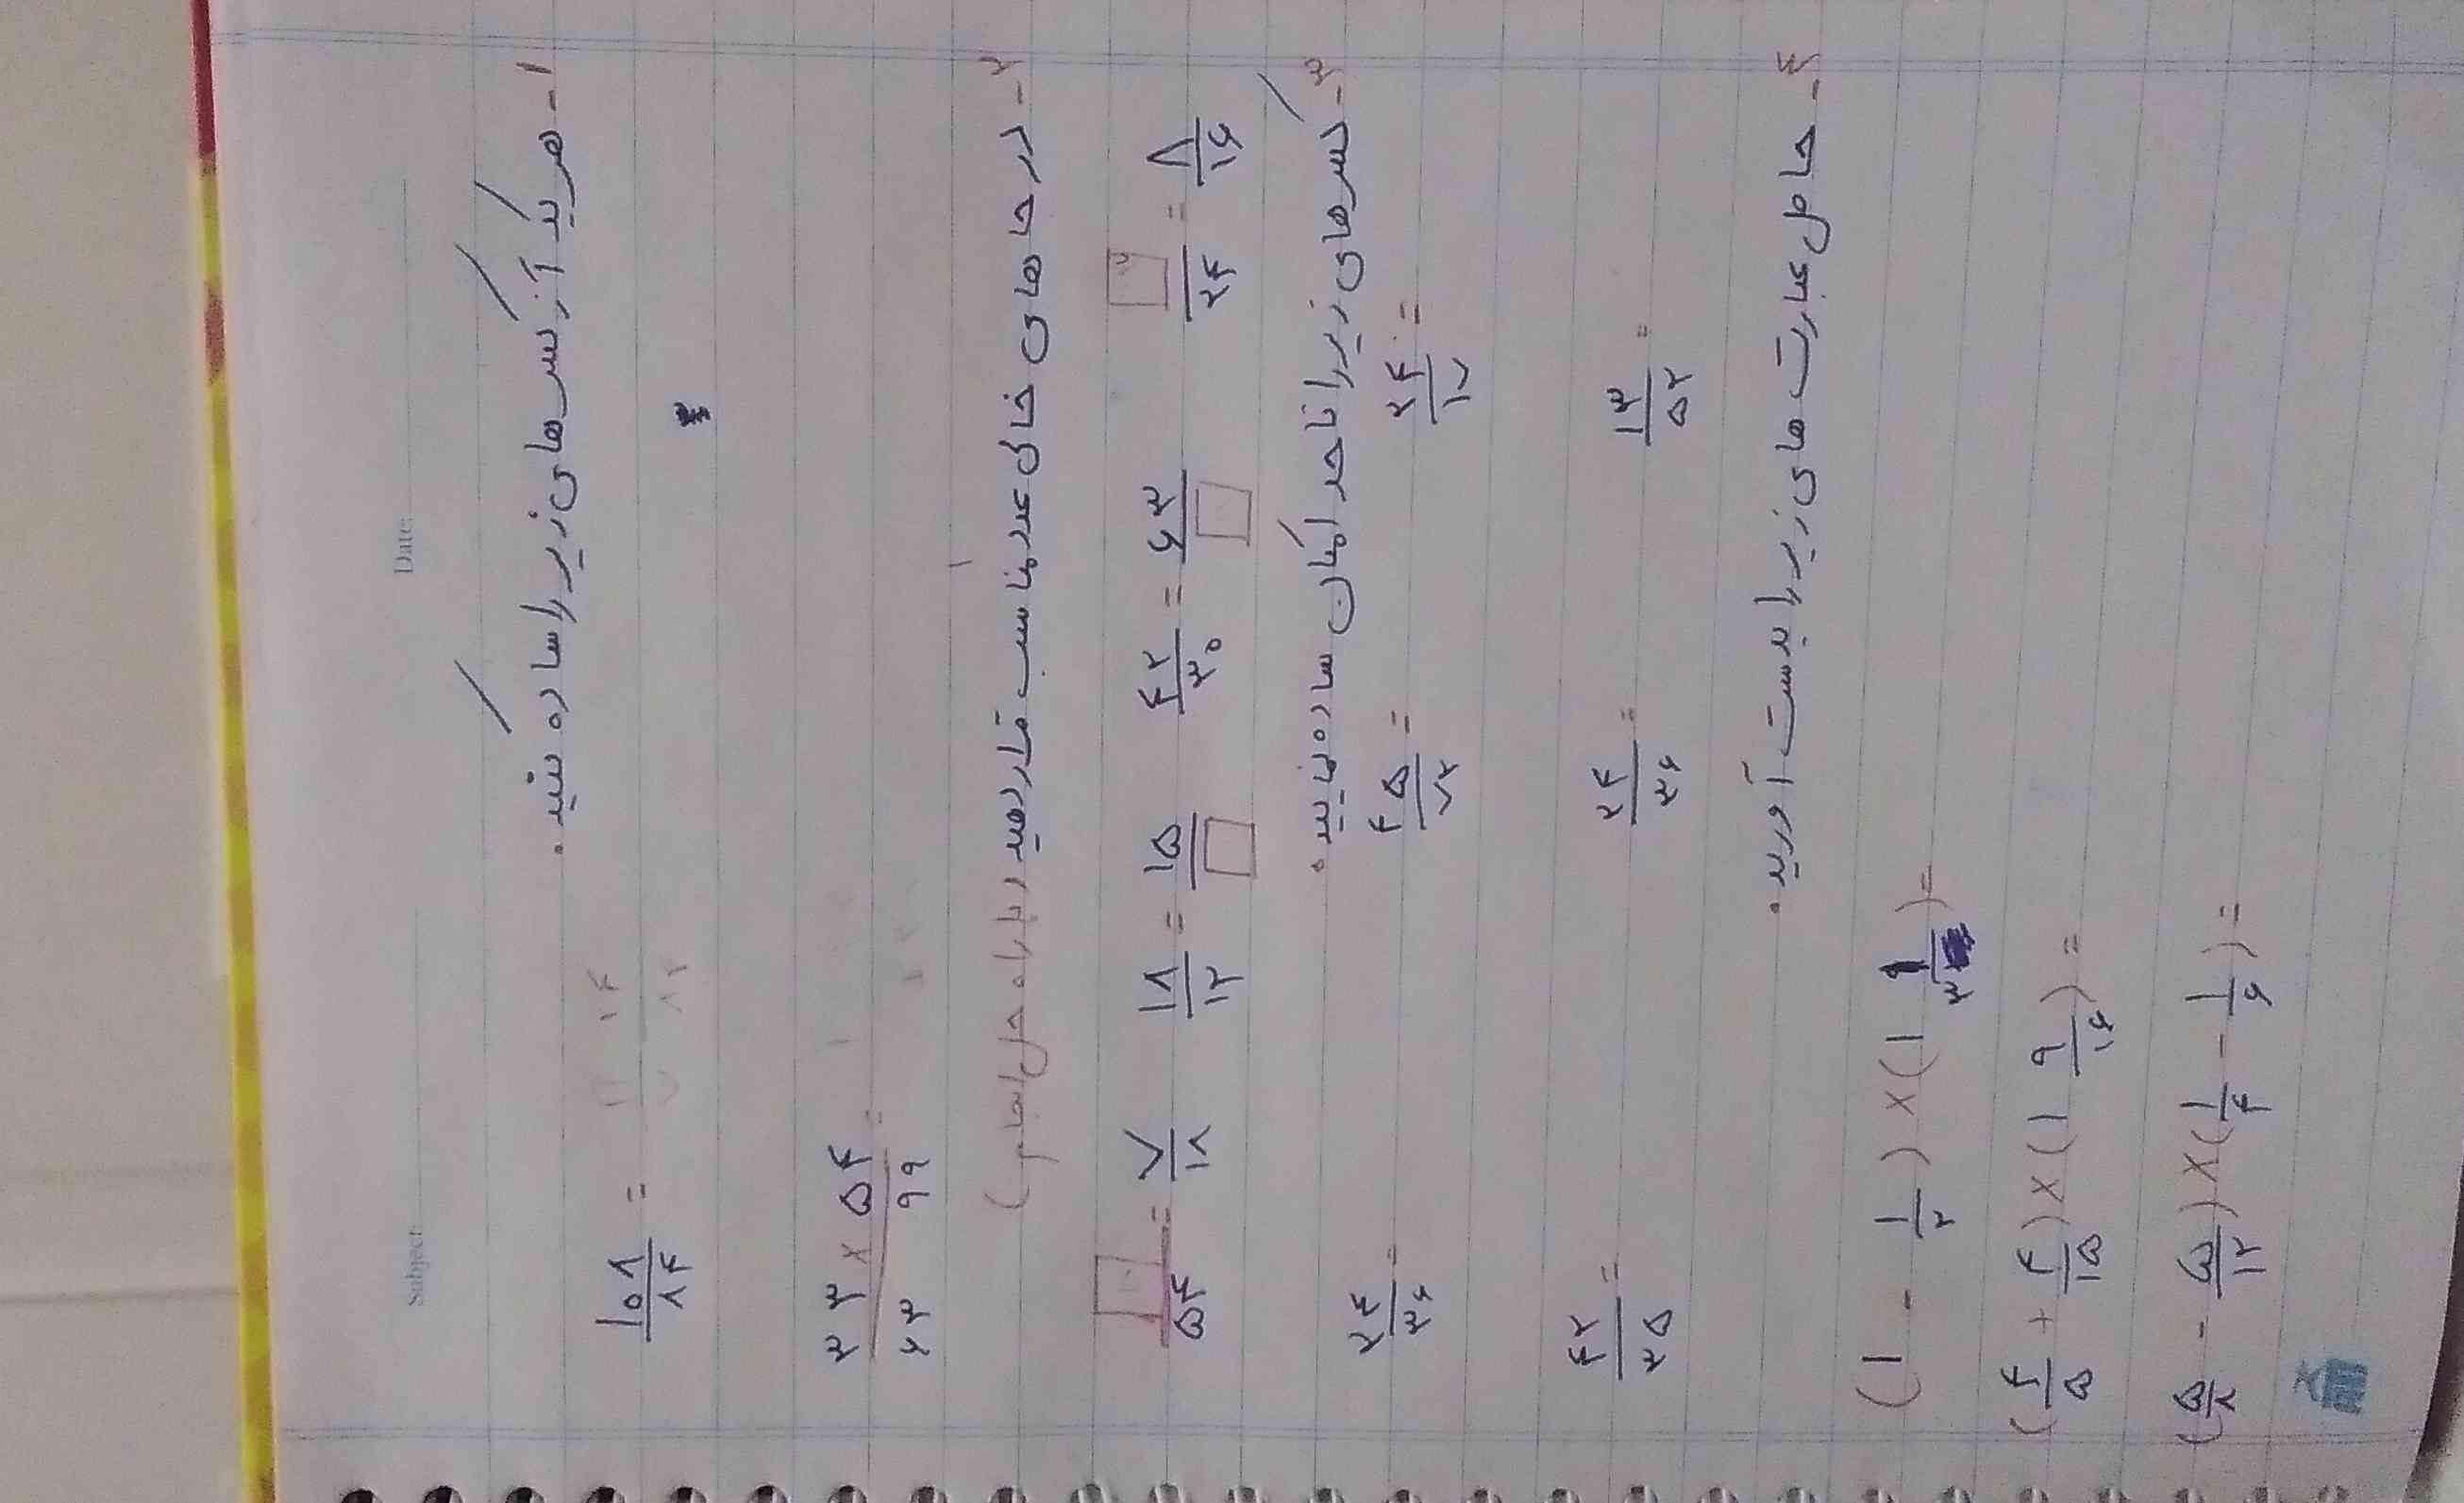 Subject: Date:
۱- هر یک از کسرهای زیر را ساده کنید.
۱۰۸/۸۴ =
۳۳ × ۵۴ / ۶۳ ۹۹ =
۲- در جاهای خالی عدد مناسب قرار دهید (با راه حل انجام)
□/۵۴ = ۷/۱۸ ۱۸/۱۲ = ۱۵/□ ۴۲/۳۰ = ۶۳/□ □/۲۴ = ۸/۱۶
۳- کسرهای زیر را تا حد امکان ساده نمایید.
۲۴/۳۶ = ۴۵/۷۲ = ۲۴/۱۷ =
۴۲/۳۵ = ۲۴/۳۶ = ۱۳/۵۲ =
۴- حاصل عبارت های زیر را بدست آورید.
(۱ - ۱/۲) × (۱ ۱/۳) =
(۴/۵ + ۴/۱۵) × (۱ ۹/۱۶) =
(۵/۸ - ۵/۱۲) × (۱/۴ - ۱/۶) =